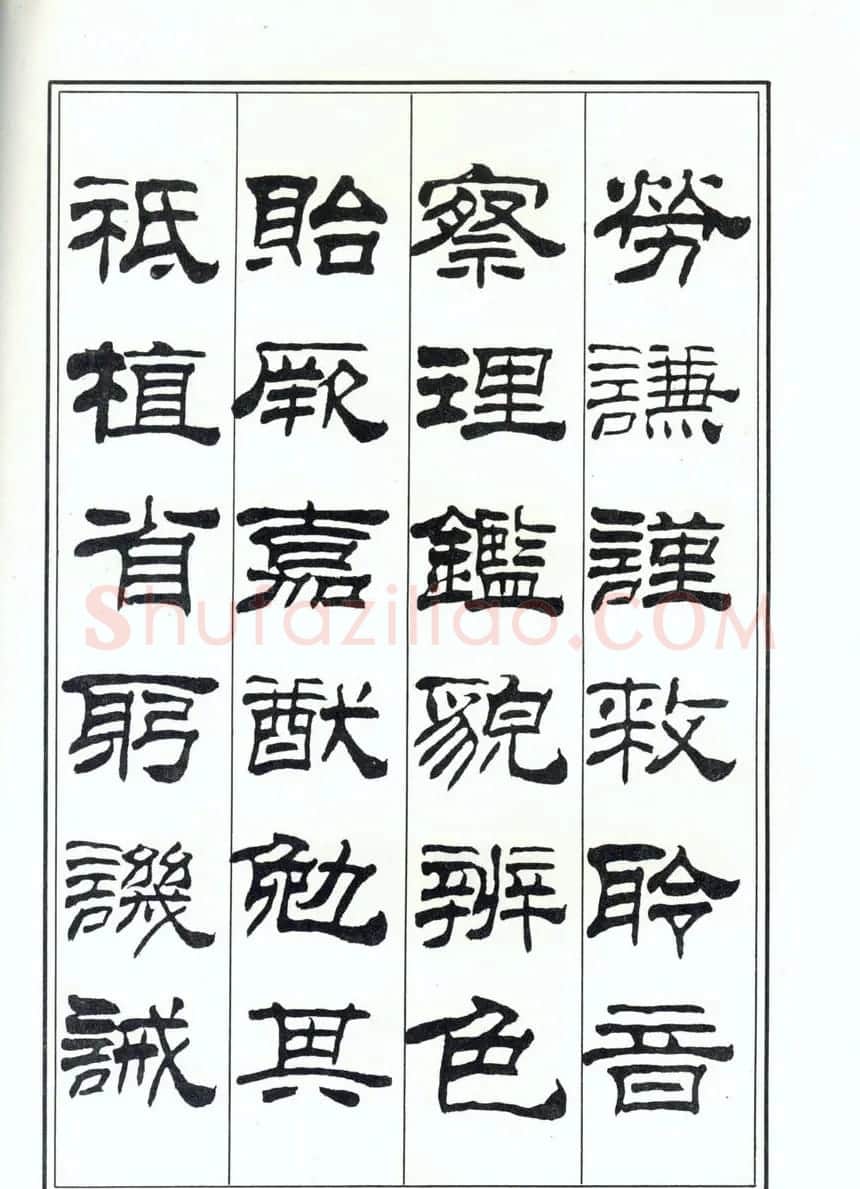 勞謙謹敕聆音
察理鑑貌辨色
貽厥嘉猷勉其
祗植省躬譏誡
Shufaziliao.COM